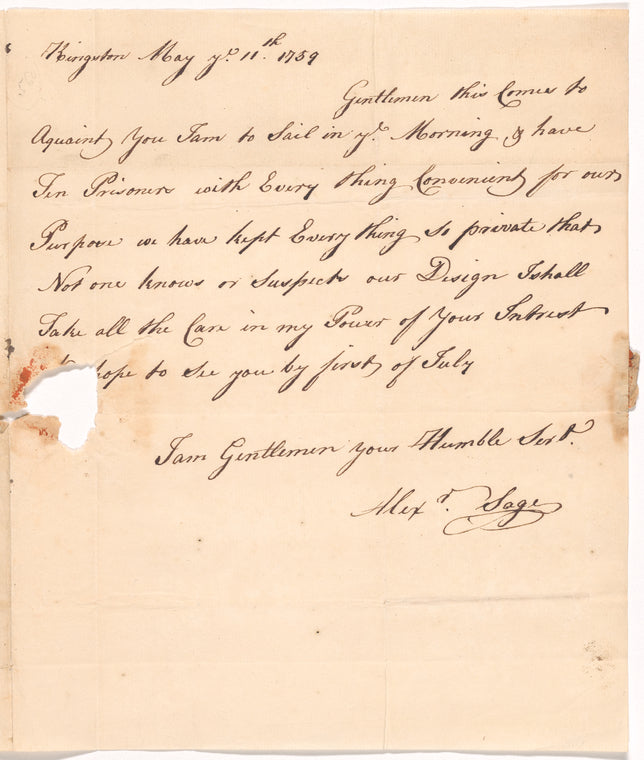 Kingston May yᵉ 11.th 1759
Gentlemen this Comes to
Aquaint You I am to Sail in yᵉ Morning & have
Ten Prisoners with Every thing Convenient for our
Purpose we have kept Every thing so private that
Not one knows or Suspects our Design I shall
Take all the Care in my Power of Your Intrest
hope to See you by first of July
I am Gentlemen your Humble Sert.
Alexr. Sage